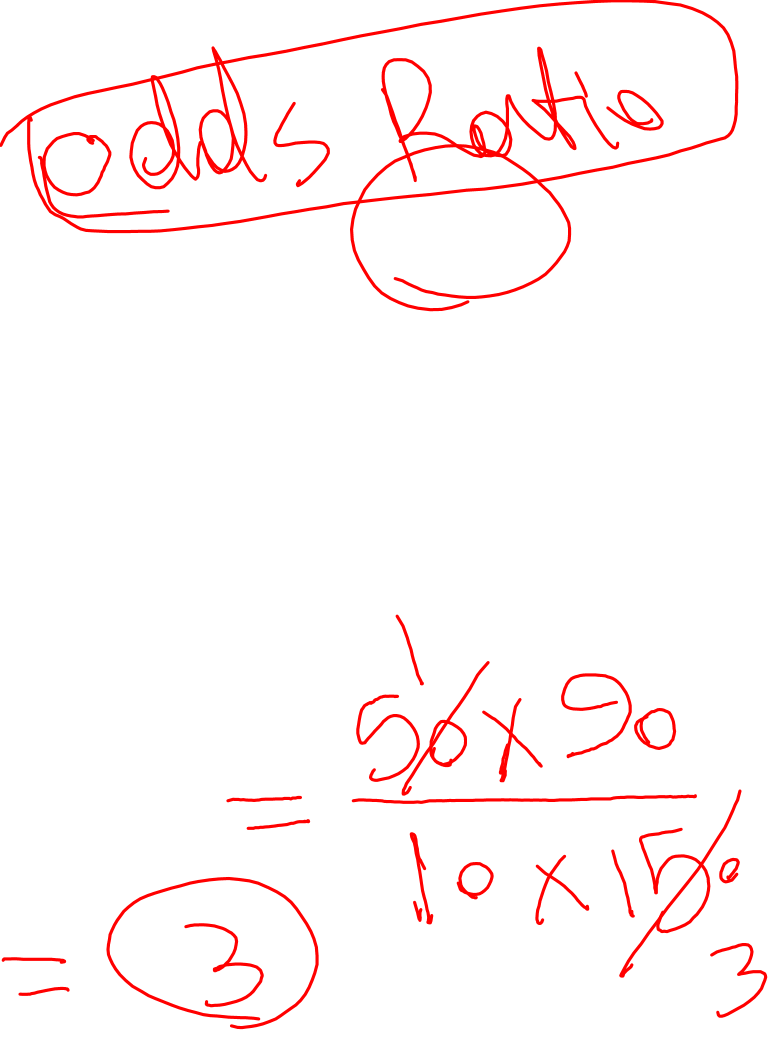 Odds Ratio
1
= 50 x 90
10 x 150
= 3
3